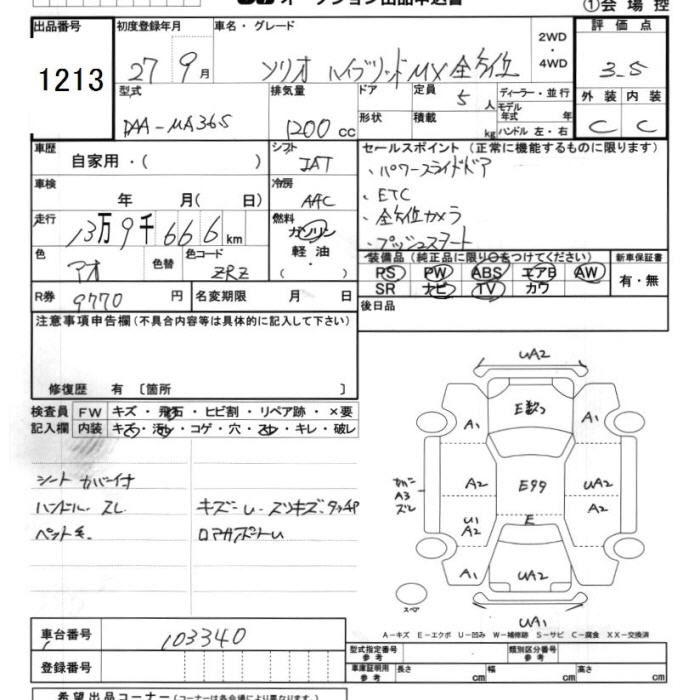 オークション出品申込書
①会場控
出品番号 初度登録年月 車名・グレード 評価点
1213 27年9月 ソリオ ハイブリッドMX 全方位 2WD・4WD 3.5
型式 排気量 ドア 定員 5人 ディーラー・並行 外装 内装
DAA-MA36S 1200cc 形状 積載 kg モデル年式 年 ハンドル 左・右 C C
車歴 自家用・( ) シフト IAT セールスポイント (正常に機能するものに限ります)
・パワースライドドア
車検 年 月(日) 冷房 AAC
・ETC
・全方位カメラ
走行 13万9千666km 燃料 ガソリン 軽油・( )
・プッシュスタート
色 アオ 色替 色コード ZRZ
装備品 (純正品に限り○をつけてください) 新車保証書
PS PW ABS エアB AW 有・無
SR ナビ TV カワ
R券 9770円 名変期限 月 日 後日品
注意事項申告欄 (不具合内容等は具体的に記入して下さい)
修復歴 有 〔箇所 〕
検査員 FW キズ・飛石・ヒビ割・リペア跡・×要
記入欄 内装 キズ・汚レ・コゲ・穴・スレ・キレ・破レ
UA2
E数コ
A1 A1
シート カバー付
カバー A3 ズレ
A2 E99 UA2
A2
ハンドル スレ キズ－U－スリキズ.タッチP
U1 A2 E
ペット毛. ロアサポートU
A1 UA2
スペア
UA1
A－キズ E－エクボ U－凹み W－補修跡 S－サビ C－腐食 XX－交換済
車台番号 103340
型式指定番号 参考 類別区分番号 参考
登録番号 車庫証明用 参考 長さ cm 幅 cm 高さ cm
希望出品コーナー (コーナーは各会場により異なります。)